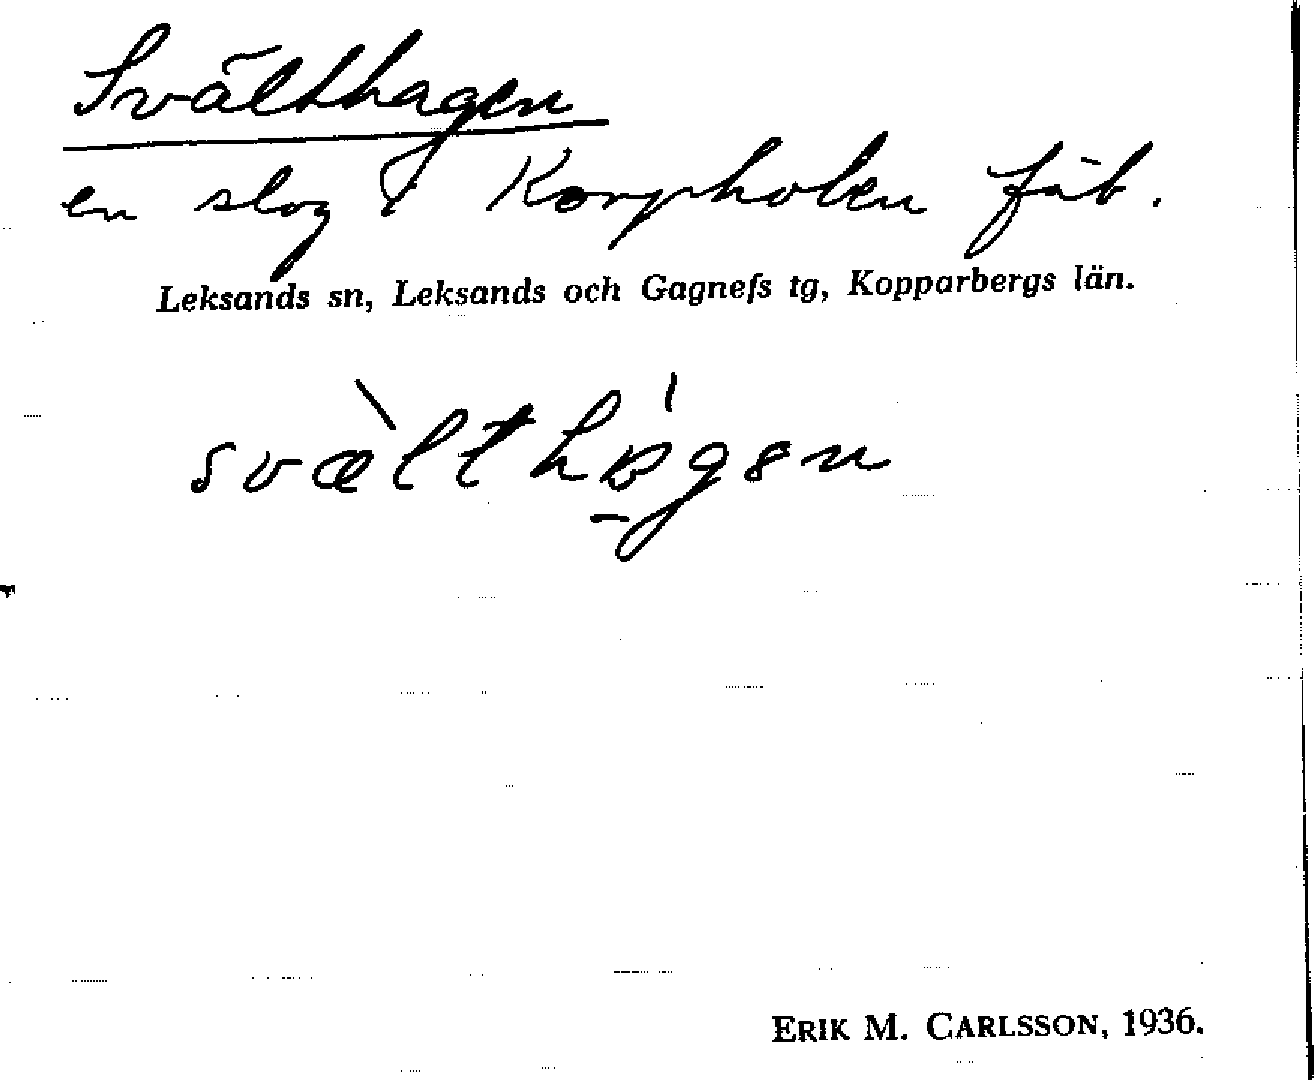 Svälthagen
en slog i Korpholen fäb.
Leksands sn, Leksands och Gagnefs tg, Kopparbergs län.
ERIK M. CARLSSON, 1936.